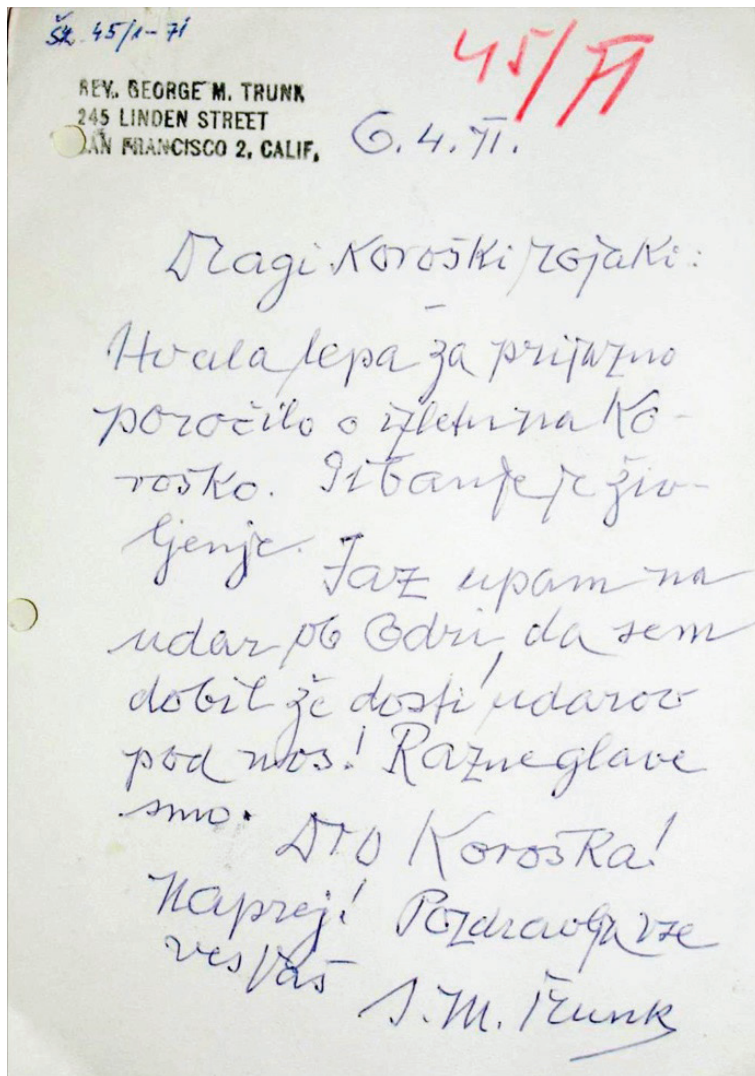 Št. 45/1-71
45/71
REV. GEORGE M. TRUNK
245 LINDEN STREET
SAN FRANCISCO 2, CALIF.
6. 4. 71.
Dragi Koroški rojaki:
Hvala lepa za prijazno
poročilo o izletu na Ko-
roško. Gibanje je živ-
ljenje. Jaz upam na
udar ob Odri, da sem
dobil že dosti udarov
pod nos! Razne glave
smo. Koroška!
Naprej! Pozdravlja vse
ves Vaš
J. M. Trunk